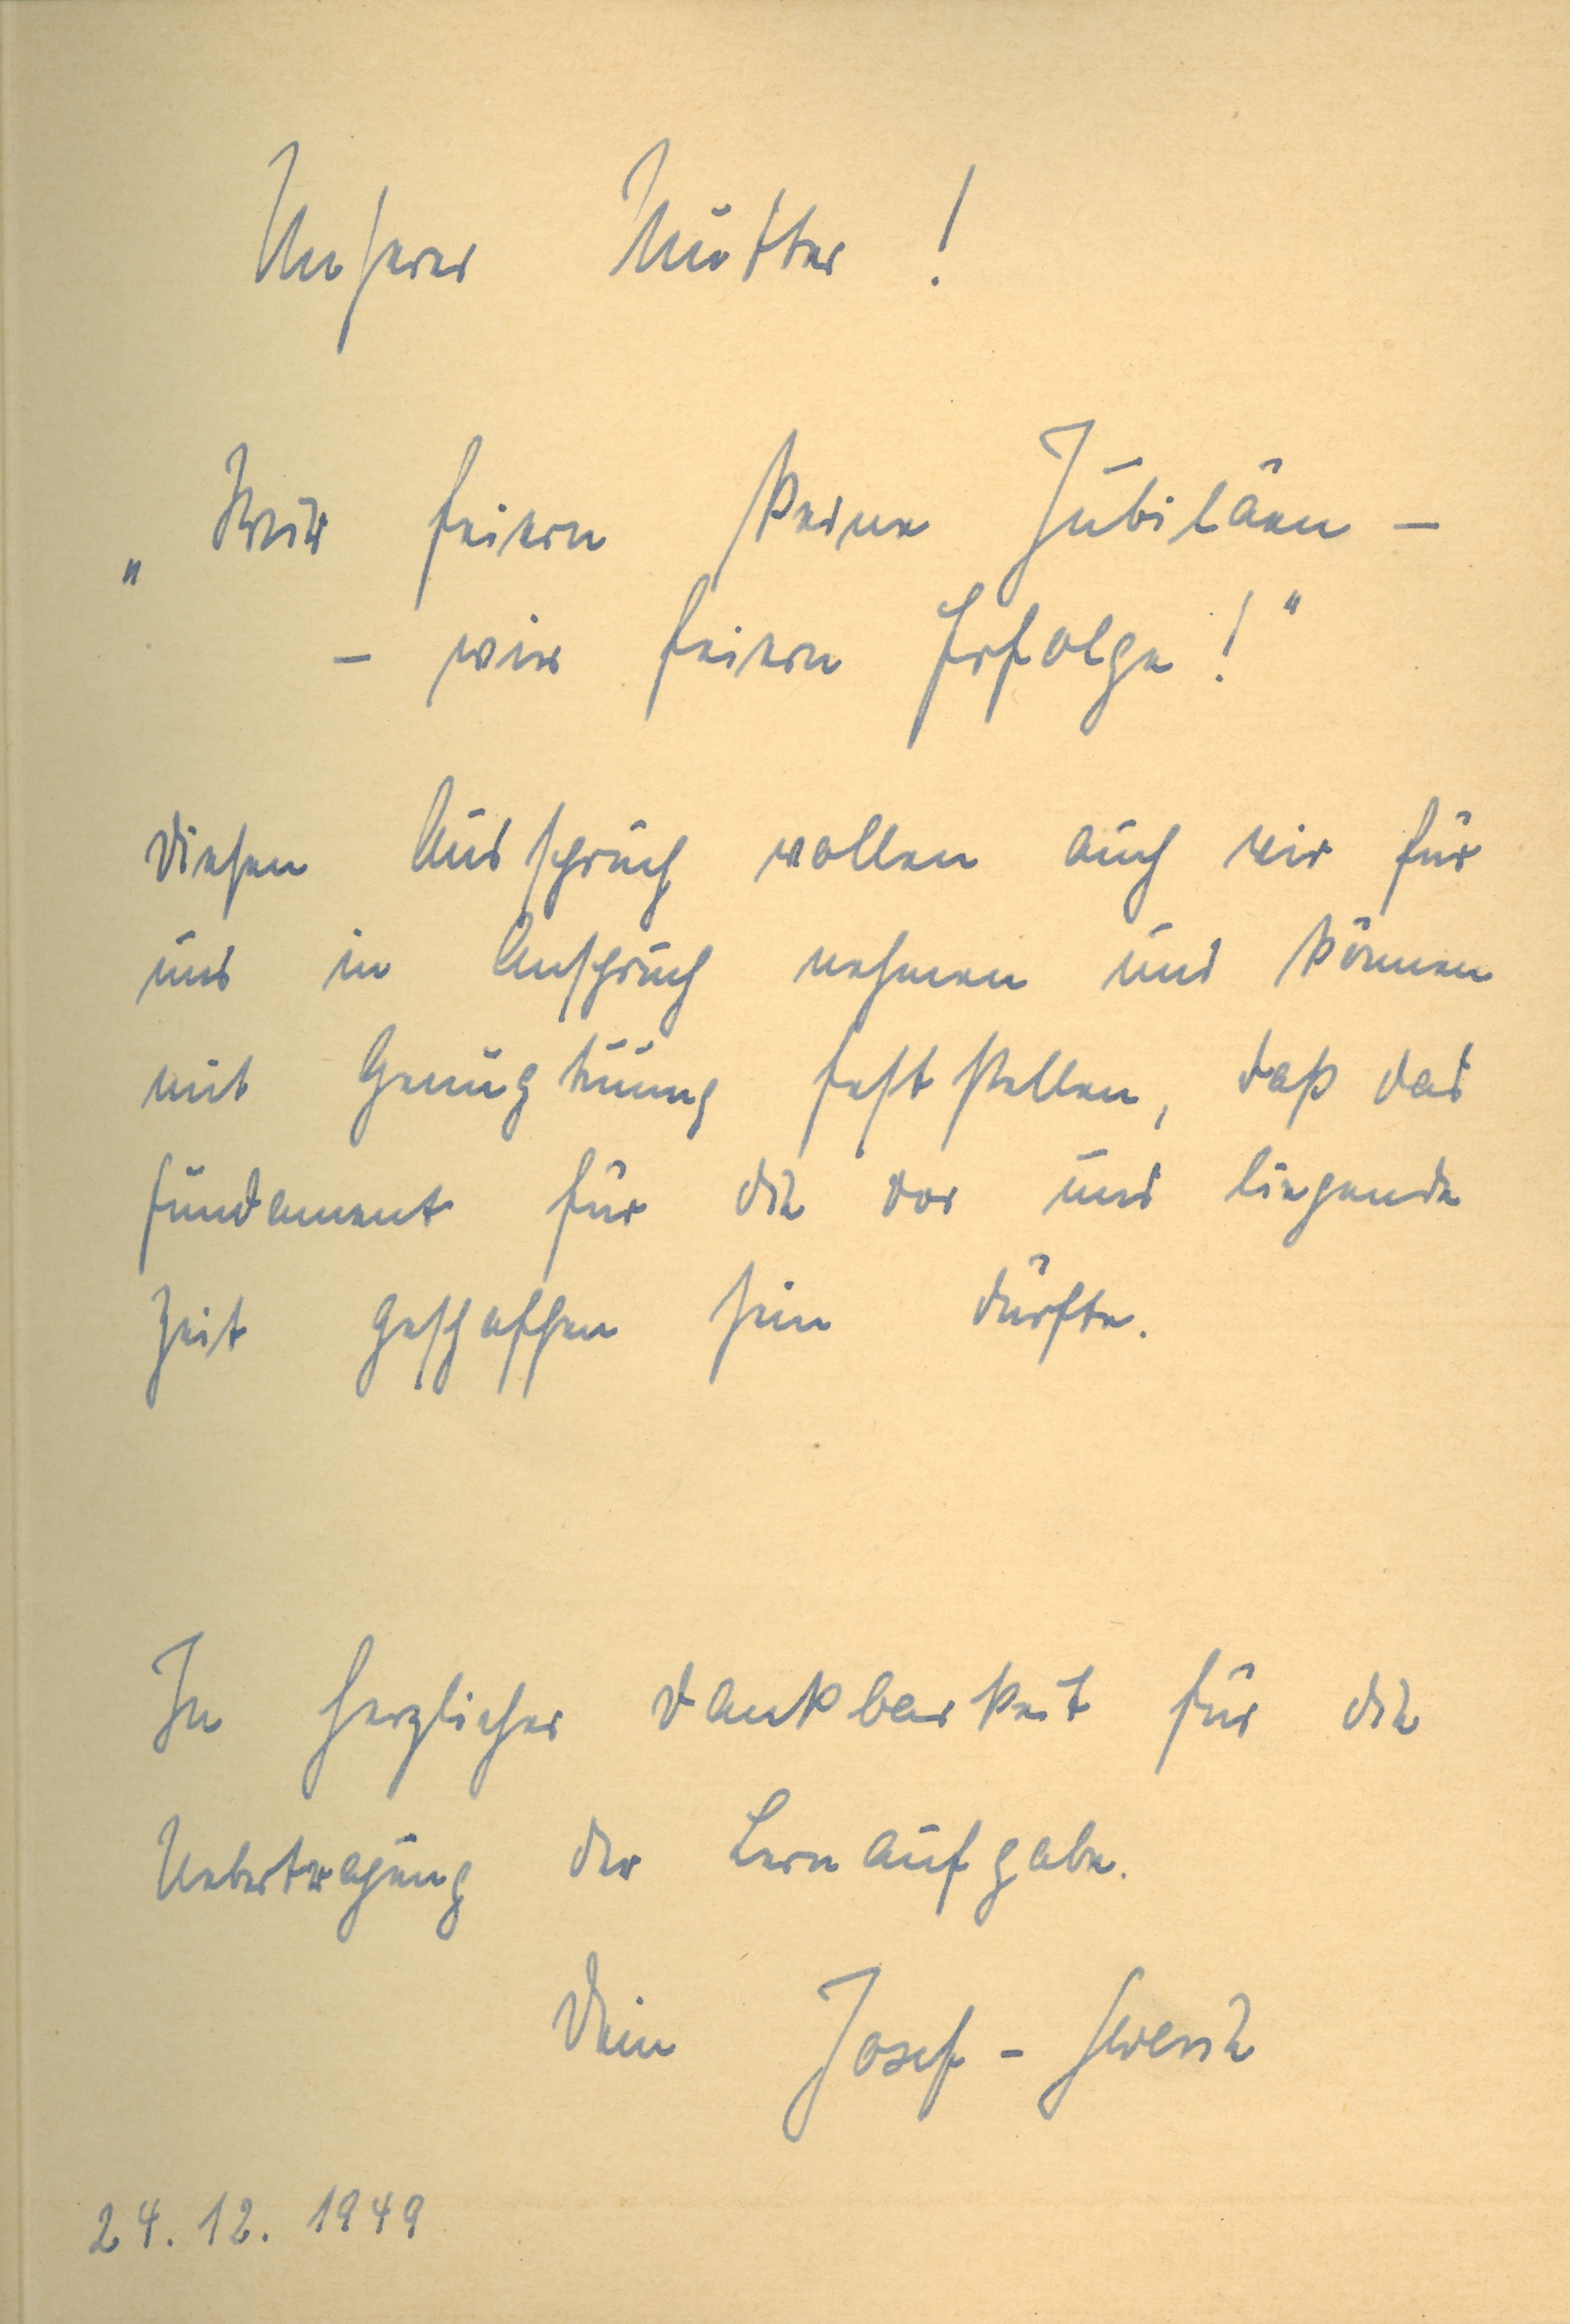 Unserer Mutter!
„Wir feiern keine Jubiläen –
– wir feiern Erfolge!“
Diesen Ausspruch wollen auch wir für
uns in Anspruch nehmen und können
mit Genugtuung feststellen, daß das
Fundament für die vor uns liegende
Zeit geschaffen sein dürfte.
In herzlicher Dankbarkeit für die
Uebertragung der Lernaufgabe.
Dein Josef –
24. 12. 1949